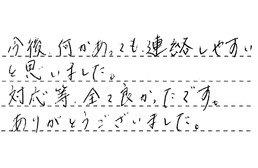 今後、何かあっても、連絡しやすい
と思いました。
対応等、全て良かったです。
ありがとうございました。